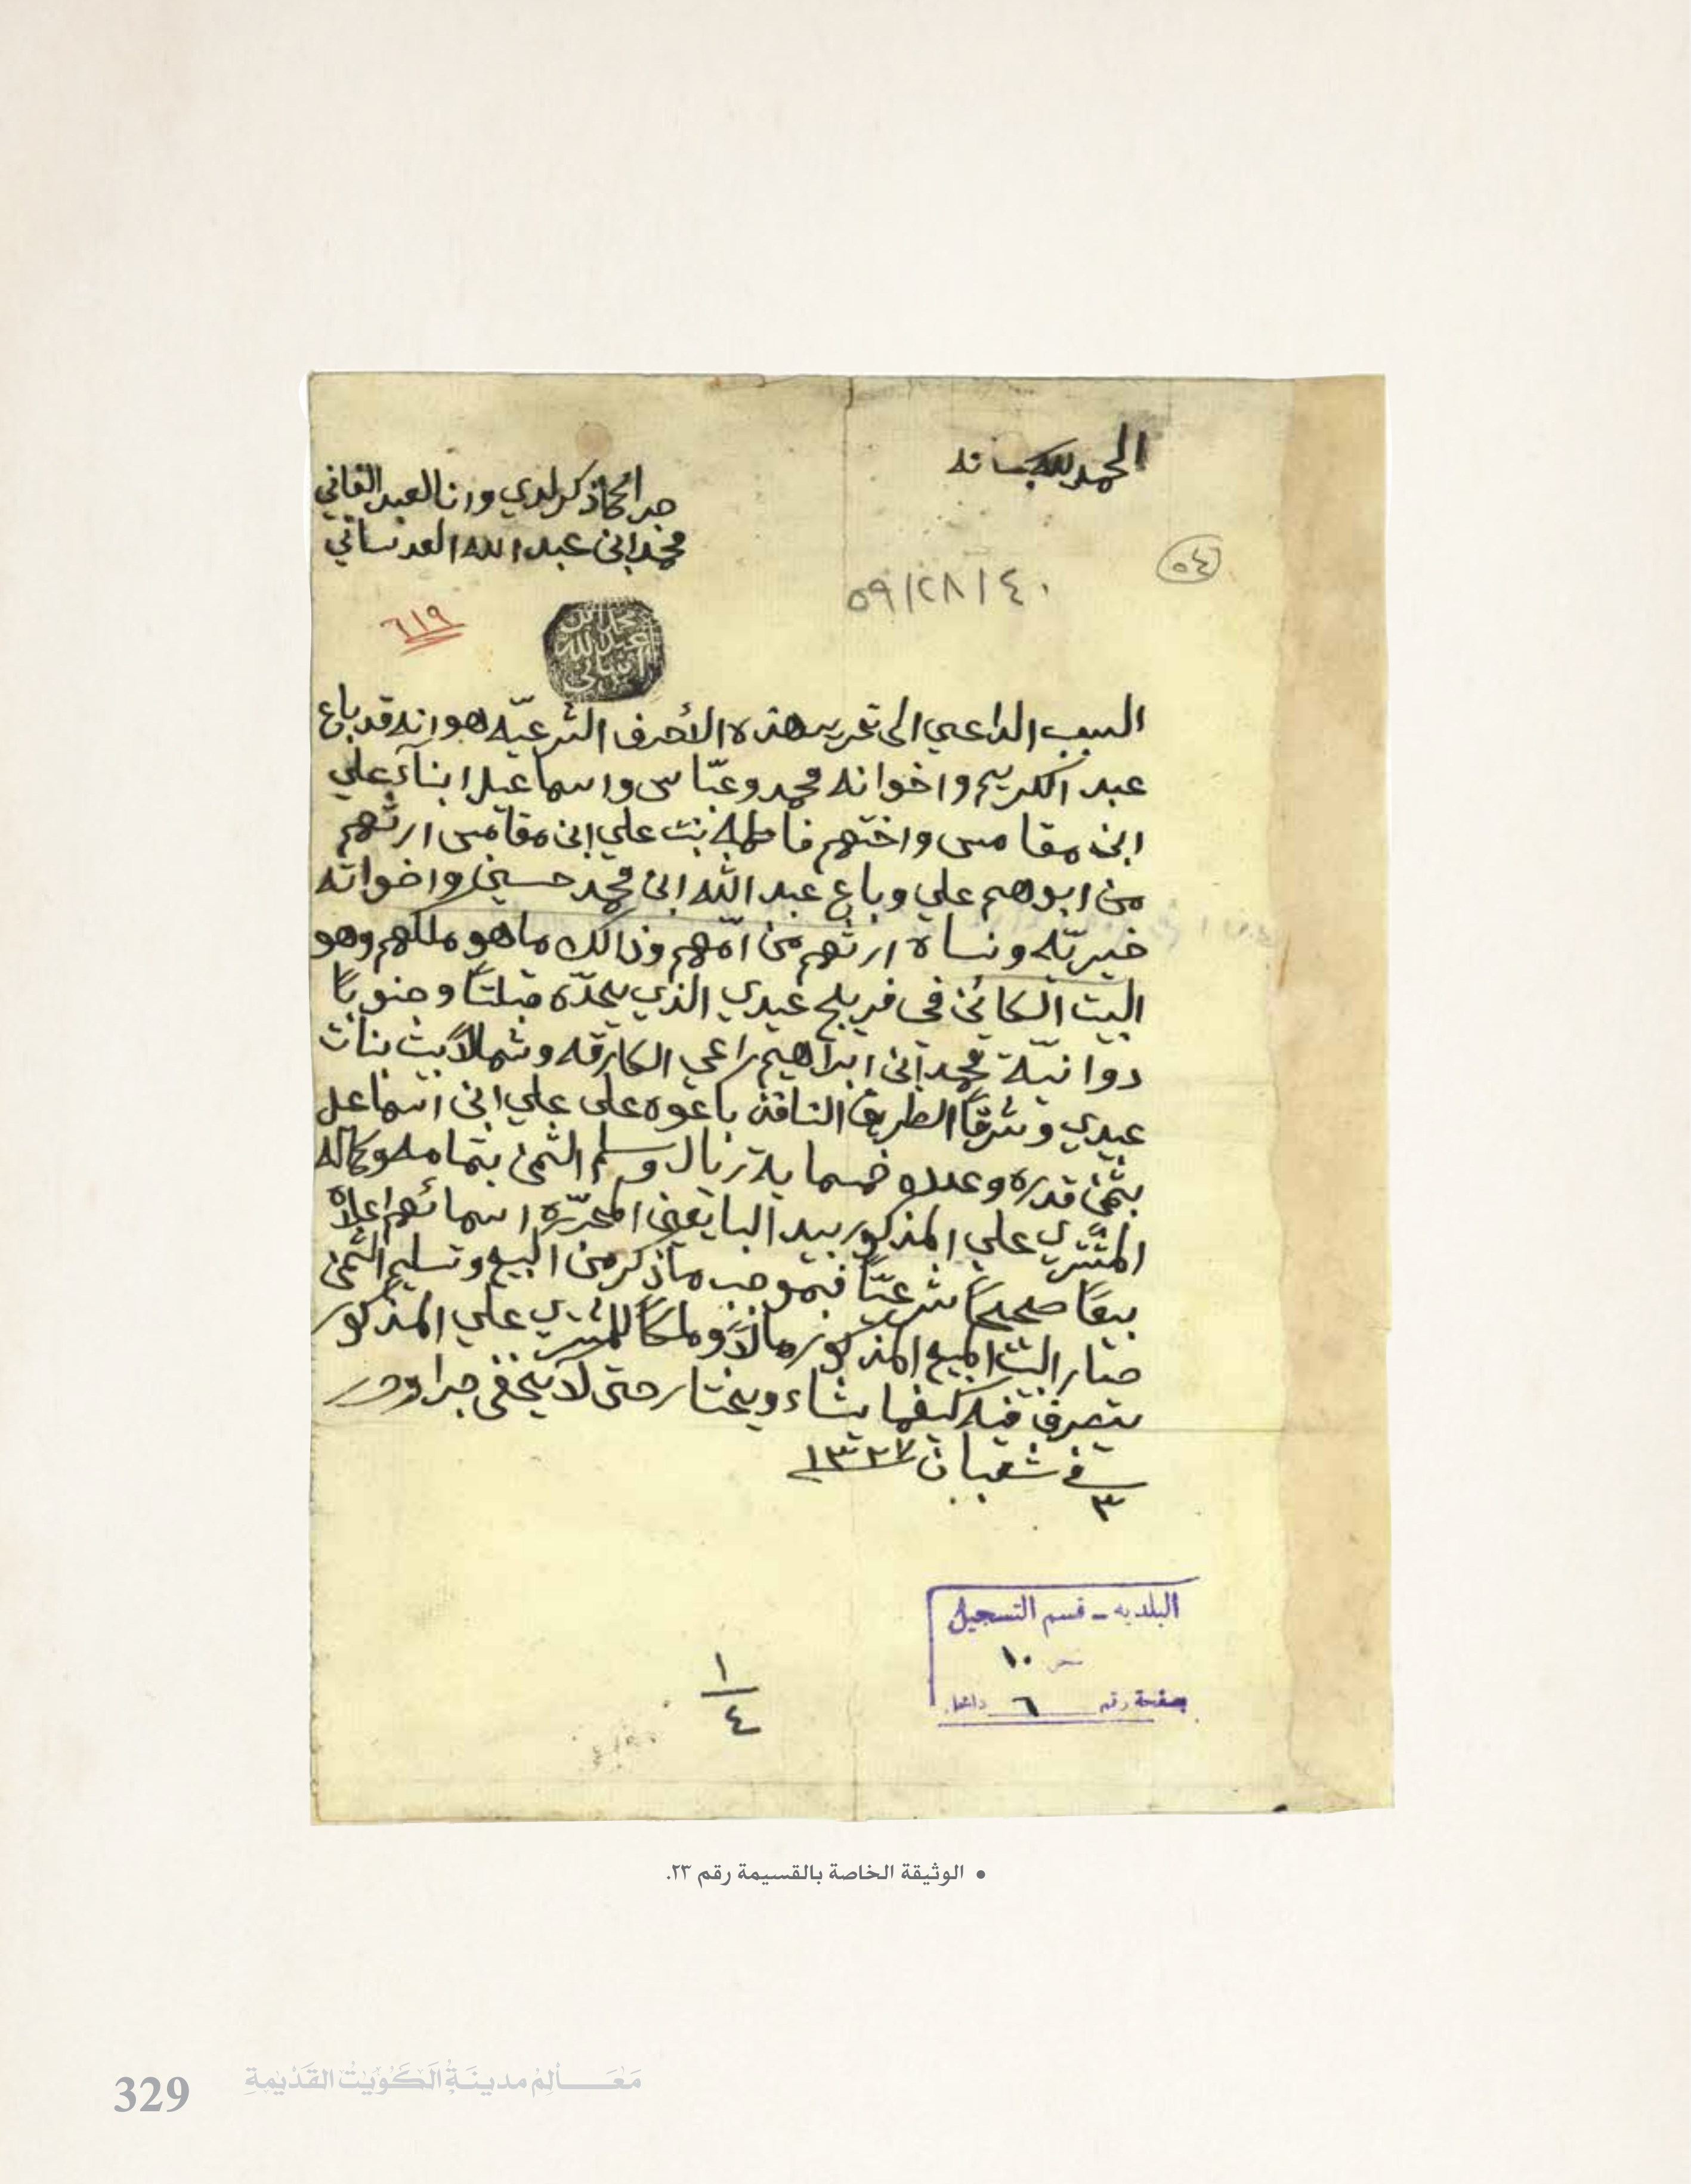 الحمد لله سبحانه
جرا كما ذكر لدي وانا العبد الفاني
محمد ابن عبد الله العدساني
٥٤
٥٩/٢٨/٤٠
٦١٩
محمد ابن
عبد الله
السبب الداعي الى تحرير هذه الأحرف الشرعيّه هو انه قد باع
عبد الكريم واخوانه محمد وعبّاس واسماعيل ابناء علي
ابن مقامس واختهم فاطمة بنت علي ابن مقامس ارثهم
من ابوهم علي وباع عبد الله ابن محمد حسين واخواته
خيريّه ونساه ارثهم من امّهم وذالك ما هو ملكهم وهو
البيت الكائن في فريج عيدي الذي يحدّه قبلتاً وجنوباً
دوانيّة محمد ابن ابراهيم راعي الكارقه وشمالاً بيت بنات
عيدي وشرقاً الطريق النافذ باعوه على علي ابن اسماعل
بثمن قدره وعدده خمسماية ريال وسلم الثمن بتمامه وكماله
المشتري علي المذكور بيد البايعين المحرّره اسمائهم اعلاه
بيعاً صحيحاً شرعيّاً فبموجب ما ذكر من البيع وتسليم الثمن
صار البيت المبيع المذكور مالاً وملكاً للمشتري علي المذكور
يتصرف فيه كيفما يشاء ويختار حتى لا يخفى جرا وحرر
في ٣ شعبان ١٣٢٧
البلديه - قسم التسجيل
١٠
صفحة رقم ٦
١
٤
• الوثيقة الخاصة بالقسيمة رقم ٢٣.
329 مَعَالِم مدينَة الكُوَيت القَدِيمَة